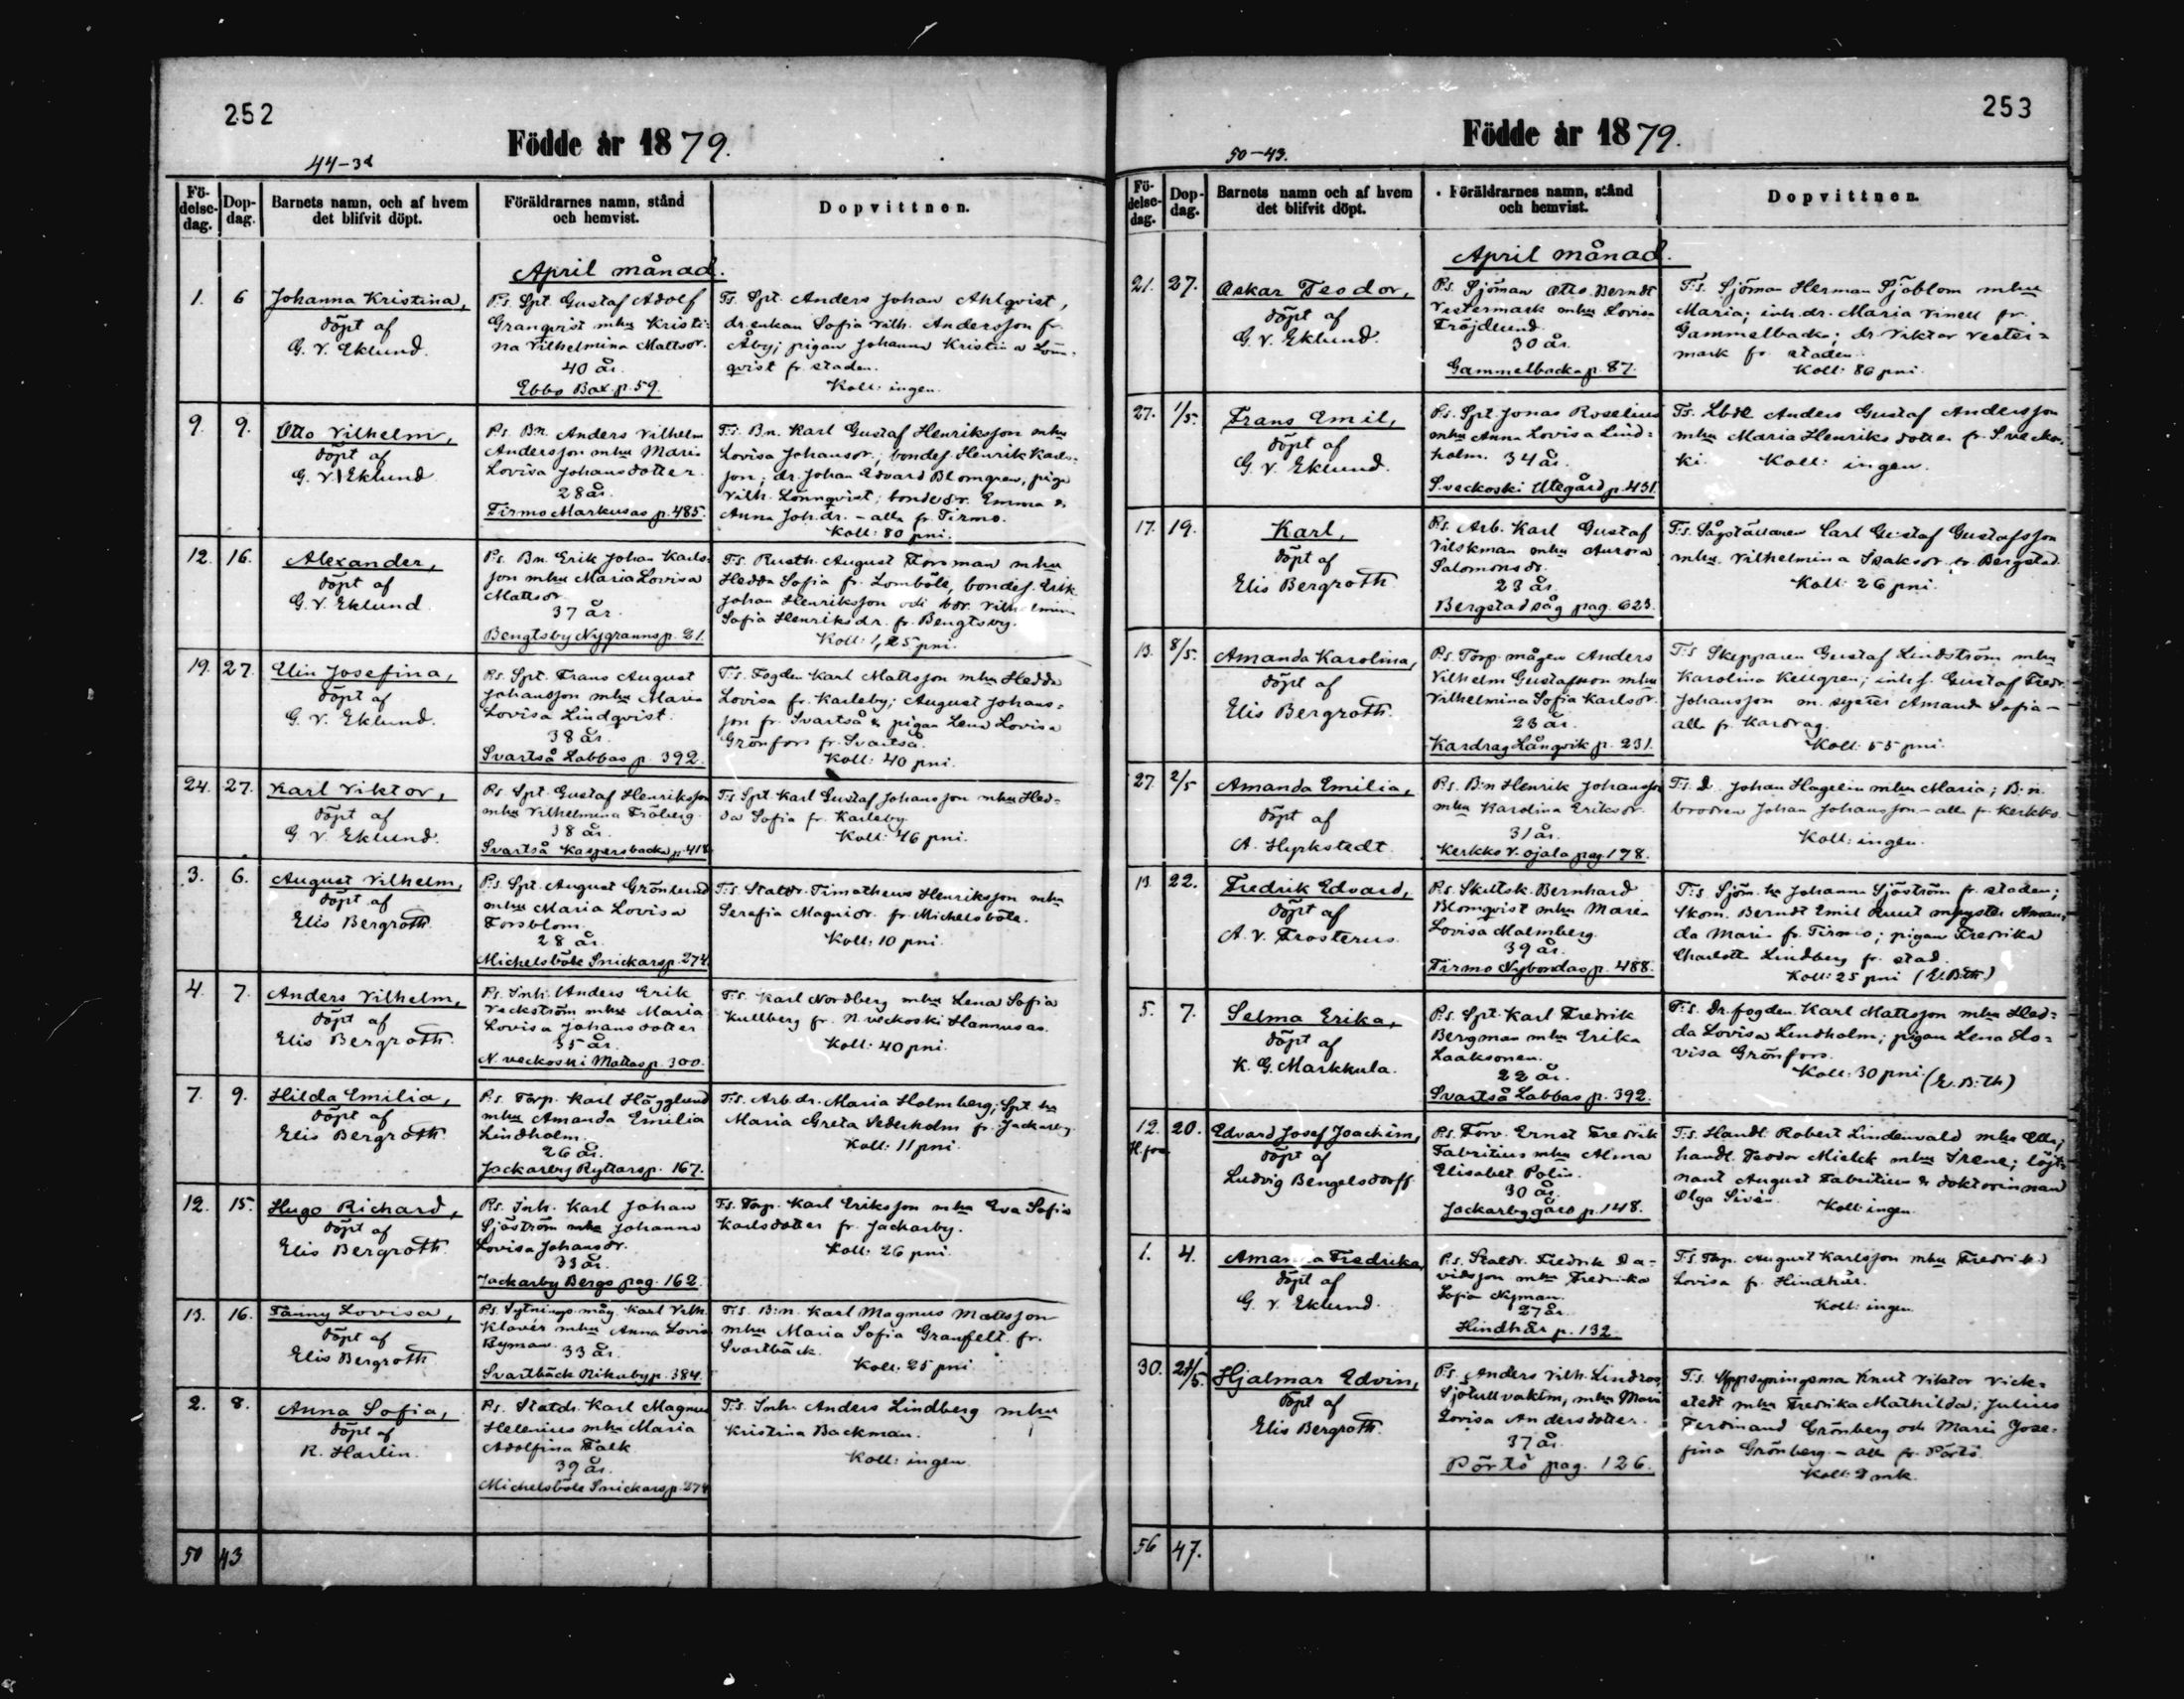 252
Födde år 1879.
44-38
Fö-
delse-
dag.
Dop-
dag.
Barnets namn, och af hvem
det blifvit döpt.
Föräldrarnes namn, stånd
och hemvist.
Dopvittnen.
April månad.
1.
6
Johanna Kristina,
döpt af
G. V. Eklund.
Ps. Spt. Gustaf Adolf
Granqvist mhu Kristi-
na Vilhelmina Mattsdr.
40 år.
Ebbo Box p. 59.
Ts. Spt. Anders Johan Ahlqvist,
dr. enkan Sofia Vilh. Andersson fr.
Åby; pigan Johanna Kristina Lönn-
qvist fr. staden.
Koll: ingen.
9.
9.
Otto Vilhelm,
döpt af
G. V. Eklund
Ps. Bn. Anders Vilhelm
Andersson mhu Maria
Lovisa Johansdotter.
28 år.
Tirmo Markusas p. 485.
T:s. Bn. Karl Gustaf Henriksson mhu
Lovisa Johansdr.; bondes. Henrik Karls-
son; dr. Johan Edvard Blomgren, piga
Vilh. Lönnqvist; bondedr. Emma &
Anna Joh. dr. - alla fr. Tirmo.
Koll: 80 pni.
12.
16.
Alexander,
döpt af
G. V. Eklund.
Ps. Bn. Erik Johan Karls-
son mhu Maria Lovisa
Mattsdr.
37 år.
Bengtsby Nygranns p. 21.
T:s. Rusth. August Forsman mhu
Hedda Sofia fr. Lomböle, bondes. Erik
Johan Henriksson och bdr. Vilhelmina
Sofia Henriksdr. fr. Bengtsby.
Koll: 1,25 pni.
19.
27.
Elin Josefina,
döpt af
G. V. Eklund.
Ps. Spt. Frans August
Johansson mhu Maria
Lovisa Lindqvist.
38 år.
Svartså Labbas p. 392.
T:s. Fogden Karl Mattsson mhu Hedda
Lovisa fr. Karleby; August Johans-
son fr. Svartså & pigan Lena Lovisa
Grönfors fr. Svartså.
Koll: 40 pni.
24.
27.
Karl Viktor,
döpt af
G. V. Eklund.
Ps. Spt. Gustaf Henriksson
mhu Vilhelmina Fröberg.
38 år.
Svartså Kaspersbacka p. 418
T:s Spt. Karl Gustaf Johansson mhu Hed-
da Sofia fr. Karleby
Koll: 46 pni.
3.
6.
August Vilhelm,
döpt af
Elis Bergroth.
P:s. Spt. August Grönlund
mhu Maria Lovisa
Forsblom.
28 år.
Michelsböle Snickars p. 274
T:s. Statdr. Timotheus Henriksson mhu
Serafia Magnidr. fr. Michelsböle.
Koll: 10 pni.
4.
7.
Anders Vilhelm,
döpt af
Elis Bergroth.
Ps. Inh. Anders Erik
Veckström mhu Maria
Lovisa Johansdotter
35 år.
N. veckoski Mattas p. 300.
T:s. Karl Nordberg mhu Lena Sofia
Kullberg fr. N. veckoski Hannusas.
Koll: 40 pni.
7.
9.
Hilda Emilia,
döpt af
Elis Bergroth.
P:s. Torp. Karl Hägglund
mhu Amanda Emilia
Lindholm.
26 år.
Jackarby Ryttars p. 167.
T:s. Arb. dr. Maria Holmberg; Spt. hu
Maria Greta Sederholm fr. Jackarby
Koll: 11 pni.
12.
15.
Hugo Richard,
döpt af
Elis Bergroth.
P:s. Inh. Karl Johan
Sjöström mhu Johanna
Lovisa Johansdr.
33 år.
Jackarby Bergs pag. 162.
T:s. Torp. Karl Eriksson mhu Eva Sofia
Karlsdotter fr. Jackarby.
Koll: 26 pni.
13.
16.
Fanny Lovisa,
döpt af
Elis Bergroth.
P:s. Sytnings måg. Karl Vilh.
Klavér mhu Anna Lovisa
Byman.
33 år.
Svartbäck Nikuby p. 384.
T:s. B:n. Karl Magnus Mattsson
mhu Maria Sofia Granfelt fr.
Svartbäck.
Koll: 25 pni.
2.
8.
Anna Sofia,
döpt af
R. Harlin.
Ps. Statdr. Karl Magnus
Helenius mhu Maria
Adolfina Falk.
39 år.
Michelsböle Snickars p. 274
T:s. Inh. Anders Lindberg mhu
Kristina Backman.
Koll: ingen.
50
43
253
Födde år 1879.
50-43.
Fö-
delse-
dag.
Dop-
dag.
Barnets namn och af hvem
det blifvit döpt.
Föräldrarnes namn, stånd
och hemvist.
Dopvittnen.
April månad.
21.
27.
Oskar Teodor,
döpt af
G. V. Eklund.
Ps. Sjöman Otto Berndt
Vestermark mhu Lovisa
Fröjdlund.
30 år.
Gammelbacka p. 87.
T:s. Sjöman Herman Sjöblom mhu
Maria; inh. dr. Maria Vinell fr.
Gammelbacka; dr. Viktor Vester-
mark fr. staden.
Koll: 86 pni.
27.
1/5.
Frans Emil,
döpt af
G. V. Eklund.
Ps. Spt. Jonas Roselius
mhu Anna Lovisa Lind-
holm. 34 år.
S.veckoski Utegård p. 431.
Ts. Lbde Anders Gustaf Andersson
mhu Maria Henriksdotter fr. S.vecko-
ki. Koll: ingen.
17.
19.
Karl,
döpt af
Elis Bergroth.
Ps. Arb. Karl Gustaf
Vilskman mhu Aurora
Salomonsdr.
23 år.
Bergstad såg pag. 623.
T:s. Sågställaren Carl Gustaf Gustafsson
mhu Vilhelmina Isaksdr. fr. Bergstad.
Koll: 26 pni.
13.
8/5.
Amanda Karolina,
döpt af
Elis Bergroth.
P:s. Torp. mågen Anders
Vilhelm Gustafsson mhu
Vilhelmina Sofia Karlsdr.
23 år.
Kardrag Långvik p. 231.
T:s Skepparen Gustaf Lindström mhu
Karolina Kellgren; inh. s. Gustaf Fredr.
Johansson m. syster Amanda Sofia -
alla fr. Kardrag.
Koll: 55 pni.
27.
2/5
Amanda Emilia,
döpt af
A. Hyrkstedt.
P:s. B:n Henrik Johansson
mhu Karolina Eriksdr.
31 år.
Kerkko V. ojala pag. 178.
T:s. D. Johan Hagelin mhu Maria; B:n.
brodren Johan Johansson - alla fr. Kerkko.
Koll: ingen.
13.
22.
Fredrik Edvard,
döpt af
A. V. Frosterus.
P:s. Skutsk. Bernhard
Blomqvist mhu Maria
Lovisa Malmberg.
39 år.
Tirmo Nybondas p. 488.
T:s. Sjöm. hu Johanna Sjöström fr. staden;
skom. Berndt Emil Ruut m syster Aman-
da Maria fr. Tirmo; pigan Fredrika
Charlotta Lindberg fr. stad.
Koll: 25 pni (E.B:th)
5.
7.
Selma Erika,
döpt af
K. G. Markkula.
P:s. Spt. Karl Fredrik
Bergman mhu Erika
Laaksonen.
22 år.
Svartså Labbas p. 392.
T:s. Dr. fogden Karl Mattsson mhu Hed-
da Lovisa Lindholm; pigan Lena Lo-
visa Grönfors.
Koll: 30 pni. (E.B:th)
12.
20.
Edvard Josef Joachim,
döpt af
Ludvig Bengelsdorff.
P:s. Forv. Ernst Fredrik
Fabritius mhu Alma
Elisabet Polin.
30 år.
Jackarby gård p. 148.
T:s. Handl. Robert Lindenvald mhu
handl. Teodor Mielck mhu Irene; löjt-
nant August Fabritius & doktorinnan
Olga Sivén. Koll: ingen
1.
4.
Amanda Fredrika,
döpt af
G. V. Eklund.
P:s. Statdr. Fredrik Da-
vidsson mhu Fredrika
Sofia Nyman.
27 år.
Hindhår p. 132.
T:s. Torp. August Karlsson mhu Fredrika
Lovisa fr. Hindhår.
Koll: ingen.
30.
24/5.
Hjalmar Edvin,
döpt af
Elis Bergroth.
P:s. Anders Vilh. Lindros,
Sjötullvaktm, mhu Maria
Lovisa Andersdotter.
37 år.
Pörtö pag. 126.
T:s. Uppsyningsma Knut Viktor Vick-
stedt mhu Fredrika Mathilda; Julius
Ferdinand Grönberg och Maria Jose-
fina Grönberg - alla fr. Pörtö.
Koll: 2 mk.
56
47.